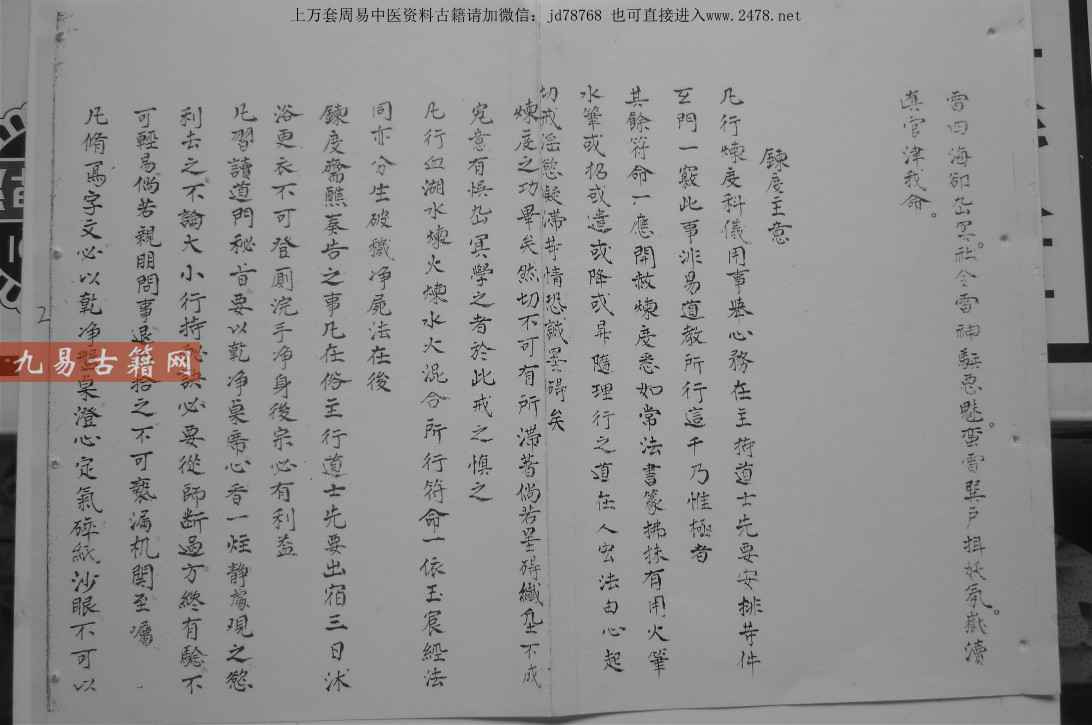 上万套周易中医资料古籍请加微信：jd78768 也可直接进入www.2478.net
雷四海卻岳冥。社令雷神馭惡魅。蛮雷巽户揖妖氛。嶽瀆
真官津我命。
鍊度主意
凡行煉度科儀用事举心務在主持道士先要安排䓁件
玄門一竅此事非易道教所行這千乃惟極者
其餘符命一應開赦煉度悉如常法書篆拂抹有用火筆
水筆或招或遣或降或昇隨理行之道在人宏法由心起
切戒淫慾凝滞䓁情恐諴罣碍矣
煉度之功畢矣然切不可有所滞着倘若罣碍纖塵不成
宛意有悞岳冥學之者於此戒之慎之
凡行血湖水煉火煉水火混合所行符命一依玉宸經法
同亦分生破穢净屍法在後
鍊度齋醮奏告之事凡在俗主行道士先要出宿三日沐
浴更衣不可登厠浣手净身後宗必有利益
凡習讀道門秘旨要以乾净桌席心香一炷静處观之慾
利去之不論大小行持必要從師断過方終有驗不
可輕易倘若親朋問事退拾之不可褻漏机関至嘱
凡脩寫字文必以乾净桌澄心定氣碎紙沙眼不可以
2
九易古籍网